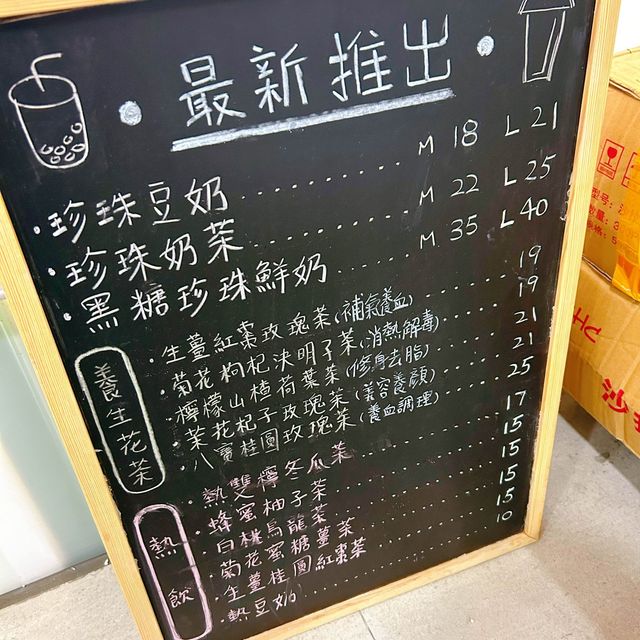 · 最新推出 ·
· 珍珠豆奶............ M 18 L 21
· 珍珠奶茶............ M 22 L 25
· 黑糖珍珠鮮奶........ M 35 L 40
養生花茶
· 生薑紅棗玫瑰茶(補氣養血)........ 19
· 菊花枸杞決明子茶(消熱解毒)........ 19
檸檬山楂荷葉茶(修身去脂)........ 21
· 茉花杞子玫瑰茶(美容養顏)........ 21
八寶桂圓玫瑰茶(養血調理)........ 25
熱飲
· 熱雙檸冬瓜茶............ 17
· 蜂蜜柚子茶............ 15
· 白桃烏龍茶............ 15
· 菊花蜜糖薑茶............ 15
· 生薑桂圓紅棗茶............ 15
· 熱豆奶............ 10
型号:
数量: 3
格: 5
沙